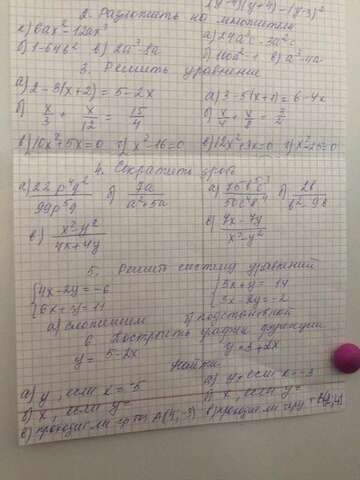 (y-4)(y+4)-(y-3)²
2. Разложить на множители
а) 6ax²-12ax³
а) 24a²c-3a²c
б) 1-64b² в) 2a³-8a
б) 100a²-1 в) a³-4a
3. Решить уравнение
а) 2-3(x+2)=5-2x
а) 3-5(x+1)=6-4x
б) x/3 + x/12 = 15/4
б) x/4 + x/8 = 3/2
в) 10x²+5x=0 г) x²-16=0
в) 12x²+3x=0 г) x²-25=0
4. Сократить дробь
а) 22p⁴q²/99p⁵q б) 7a/a²+5a
а) б) 2b/b²-9b
в) x²-y²/4x+4y
в) 7x-7y/x²-y²
5. Решить систему уравнений
{4x-2y=-6
6x+y=11
{5x+y=14
3x-2y=-2
а) сложением б) подстановкой
6. Построить график функции
y=5-2x
y=3+2x
Найти
а) y, если x=-5
а) y, если x=-3
б) x, если y=
б) x, если y=
в) проходит ли гр